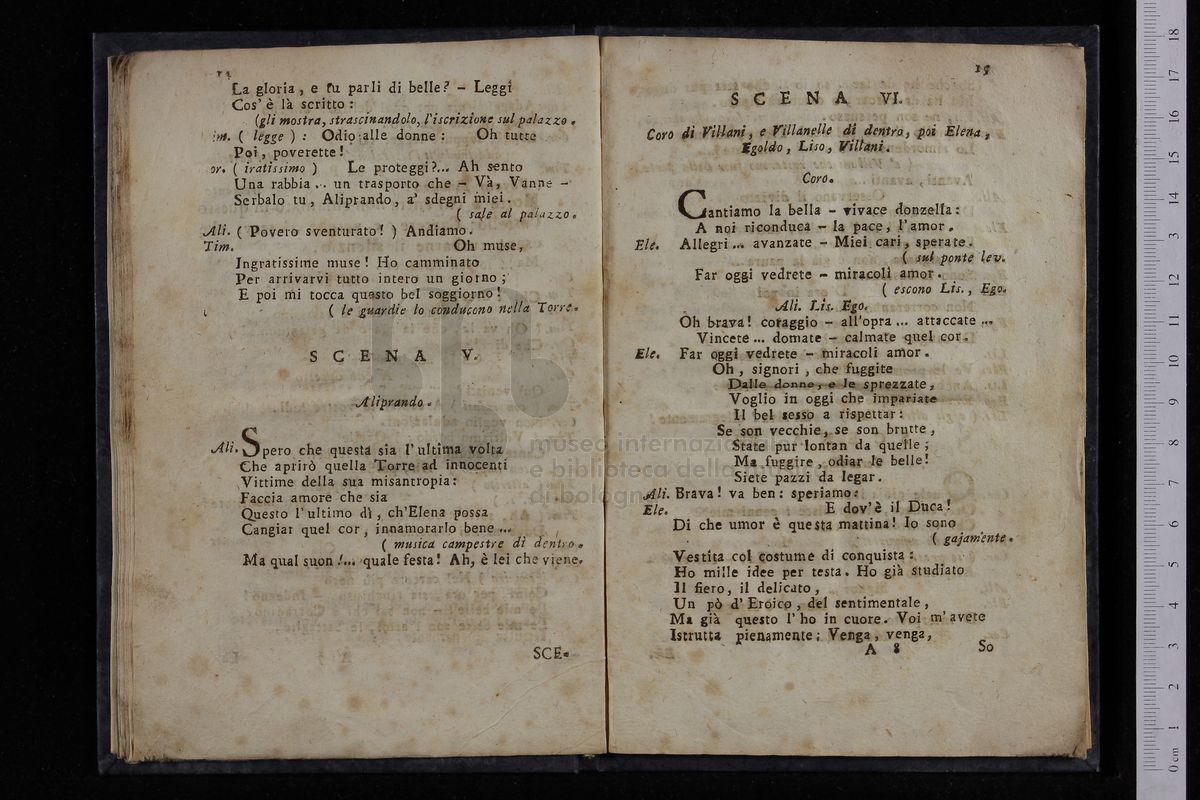 14
La gloria, e tu parli di belle? – Leggi
Cos' è là scritto:
(gli mostra, strascinandolo, l'iscrizione sul palazzo.
im. ( legge ) : Odio alle donne : Oh tutte
Poi, poverette!
or. ( iratissimo ) Le proteggi?... Ah sento
Una rabbia .. un trasporto che – Và, Vanne –
Serbalo tu, Aliprando, a' sdegni miei.
( sale al palazzo.
Ali. ( Povero sventurato! ) Andiamo.
Tim. Oh muse,
Ingratissime muse! Ho camminato
Per arrivarvi tutto intero un giorno ;
E poi mi tocca questo bel soggiorno!
( le guardie lo conducono nella Torre.
SCENA V.
Aliprando.
Ali. Spero che questa sia l'ultima volta
Che aprirò quella Torre ad innocenti
Vittime della sua misantropia:
Faccia amore che sia
Questo l'ultimo dì, ch'Elena possa
Cangiar quel cor, innamorarlo bene ...
( musica campestre di dentro.
Ma qual suon !... quale festa! Ah, è lei che viene.
SCE-
15
SCENA VI.
Coro di Villani, e Villanelle di dentro, poi Elena,
Egoldo, Liso, Villani.
Coro.
Cantiamo la bella – vivace donzella:
A noi riconduca – la pace, l'amor.
Ele. Allegri ... avanzate – Miei cari, sperate.
( sul ponte lev.
Far oggi vedrete – miracoli amor.
( escono Lis., Ego.
Ali. Lis. Ego.
Oh brava! coraggio – all'opra ... attaccate ...
Vincete ... domate – calmate quel cor.
Ele. Far oggi vedrete – miracoli amor.
Oh, signori, che fuggite
Dalle donne, e le sprezzate,
Voglio in oggi che impariate
Il bel sesso a rispettar:
Se son vecchie, se son brutte,
State pur lontan da quelle;
Ma fuggire, odiar le belle!
Siete pazzi da legar.
Ali. Brava! va ben: speriamo:
Ele. E dov'è il Duca!
Di che umor è questa mattina! Io sono
( gajamente.
Vestita col costume di conquista:
Ho mille idee per testa. Ho già studiato
Il fiero, il delicato,
Un pò d'Eroico, del sentimentale,
Ma già questo l'ho in cuore. Voi m'avete
Istrutta pienamente: Venga, venga,
A 8 So
museo internazionale
e biblioteca della musica
di bologna
0 cm 1 2 3 4 5 6 7 8 9 10 11 12 13 14 15 16 17 18